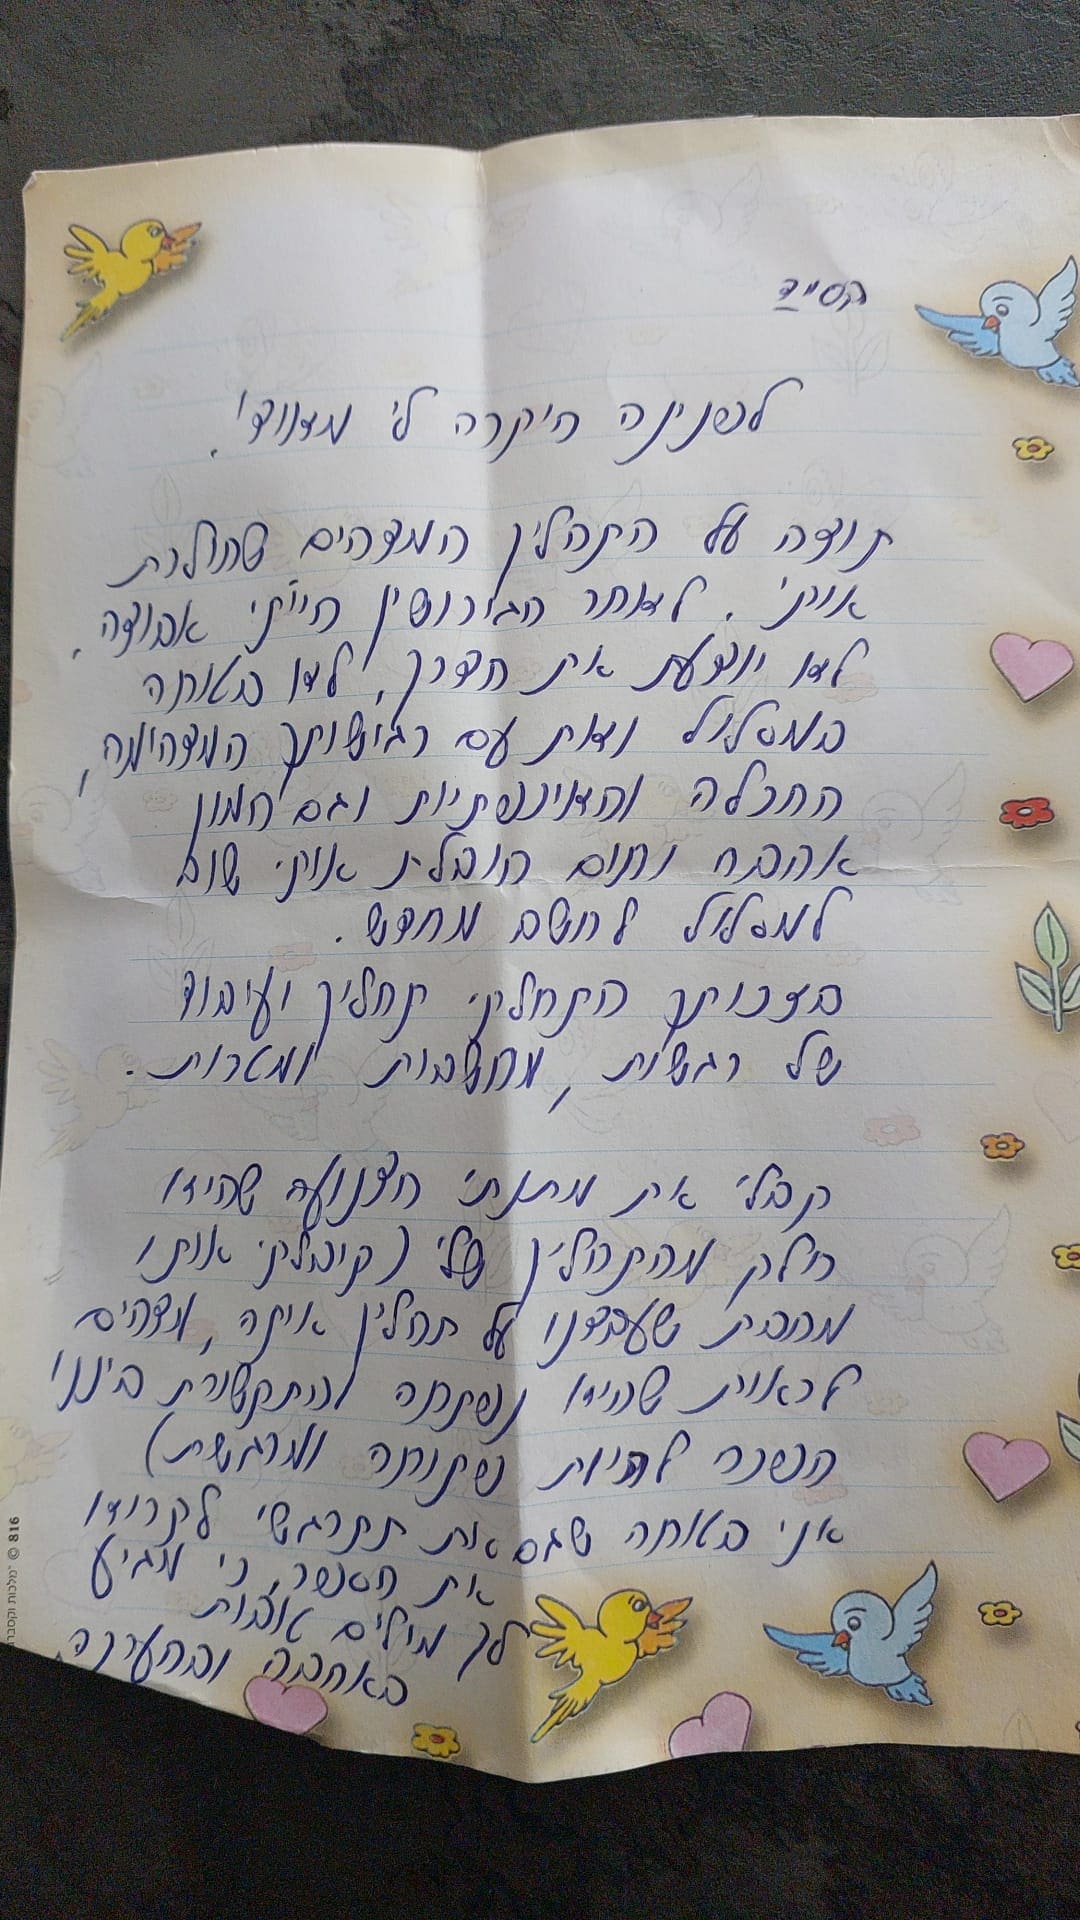 בס״ד
לפנינה היקרה לי מאוד!
תודה על התהליך המדהים שחולת
אותי. לאחר הגירושין הייתי אבודה,
לא יודעת את הדרך, לא בטוחה
במסלול ואת עם רגישותך המדהימה,
ההכלה והאינפתיות וגם המון
אהבה וחום הובלת אותי שוב
למסלול לחשב מחדש.
בזכותך התחלתי תהליך ועיבוד
של רגשות, מחשבות ומטרות.
קבלי את מתנתי הצנועה שהיא
חלק מהתהליך שלי (קיבלתי אותו
מהבת שעבדנו על תהליך איתה, מדהים
לראות שהיא נפתחה והתקשורת ביננו
הפכה להיות פתוחה ומרגשת)
אני בטוחה שגם את תתרגשי לקרוא
את הספר, כי מגיע
לך מילים טובות
באהבה ובהערכה
816 ©